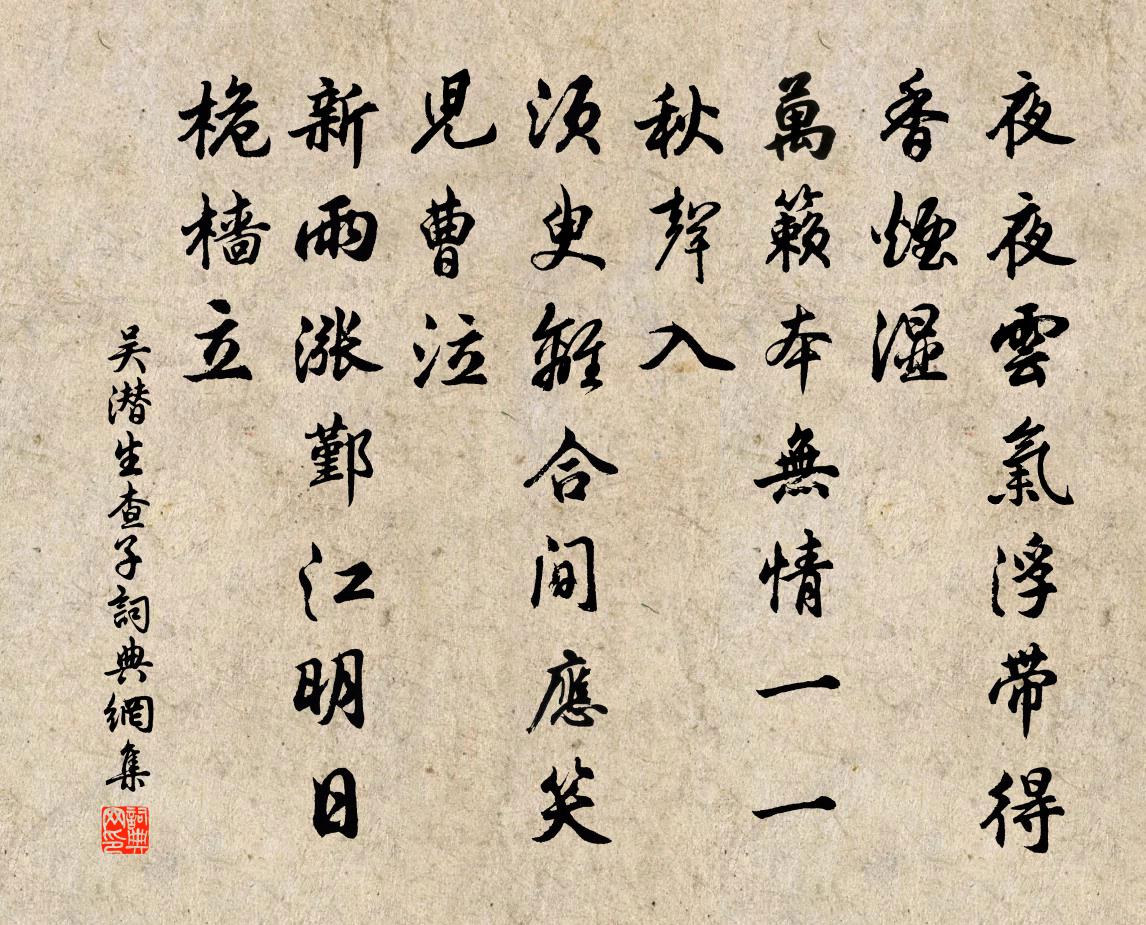 夜夜雲氣浮帶得
香煙濕
萬籟本無情一一
秋聲入
須臾離合間應笑
兒曹泣
新雨漲鄞江明日
桅檣立
吴潛生查子詞典網集
詞典網印